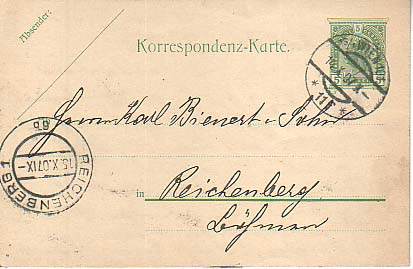 Absender:
Korrespondenz-Karte.
5
WIEN
11F
Herrn Karl Bienert u. Sohn
in Reichenberg
Böhmen
REICHENBERG 1
15.X.07.IX-